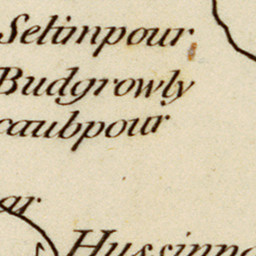 Selimpour
Budgrowly
caubpour
ar
Hussinp